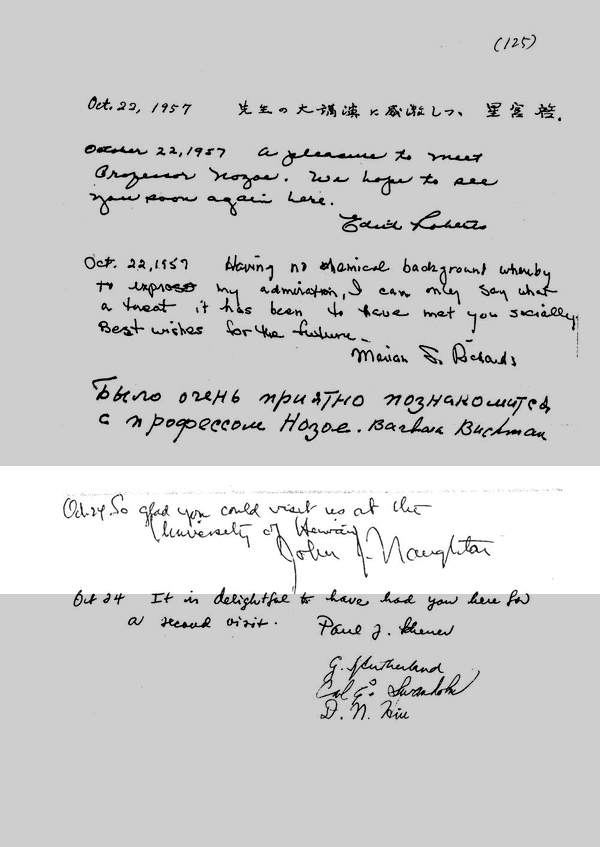 (125)
Oct. 22, 1957 先生の大講演に感激しつゝ 星宮 啓.
October 22, 1957 A pleasure to meet
Professor Nozoe. We hope to see
you soon again here.
Edith Roberts
Oct. 22, 1957 Having no chemical background whereby
to express my admiration, I can only say what
a treat it has been to have met you socially.
Best wishes for the future.
Marian S. Richards
Было очень приятно познакомится
с профессом Нозое. Barbara Buchman
Oct. 24. So glad you could visit us at the
University of Hawaii
John J. Naughton
Oct 24 It is delightful to have had you here for
a second visit. Paul J.
G. Sutherland
D. N.